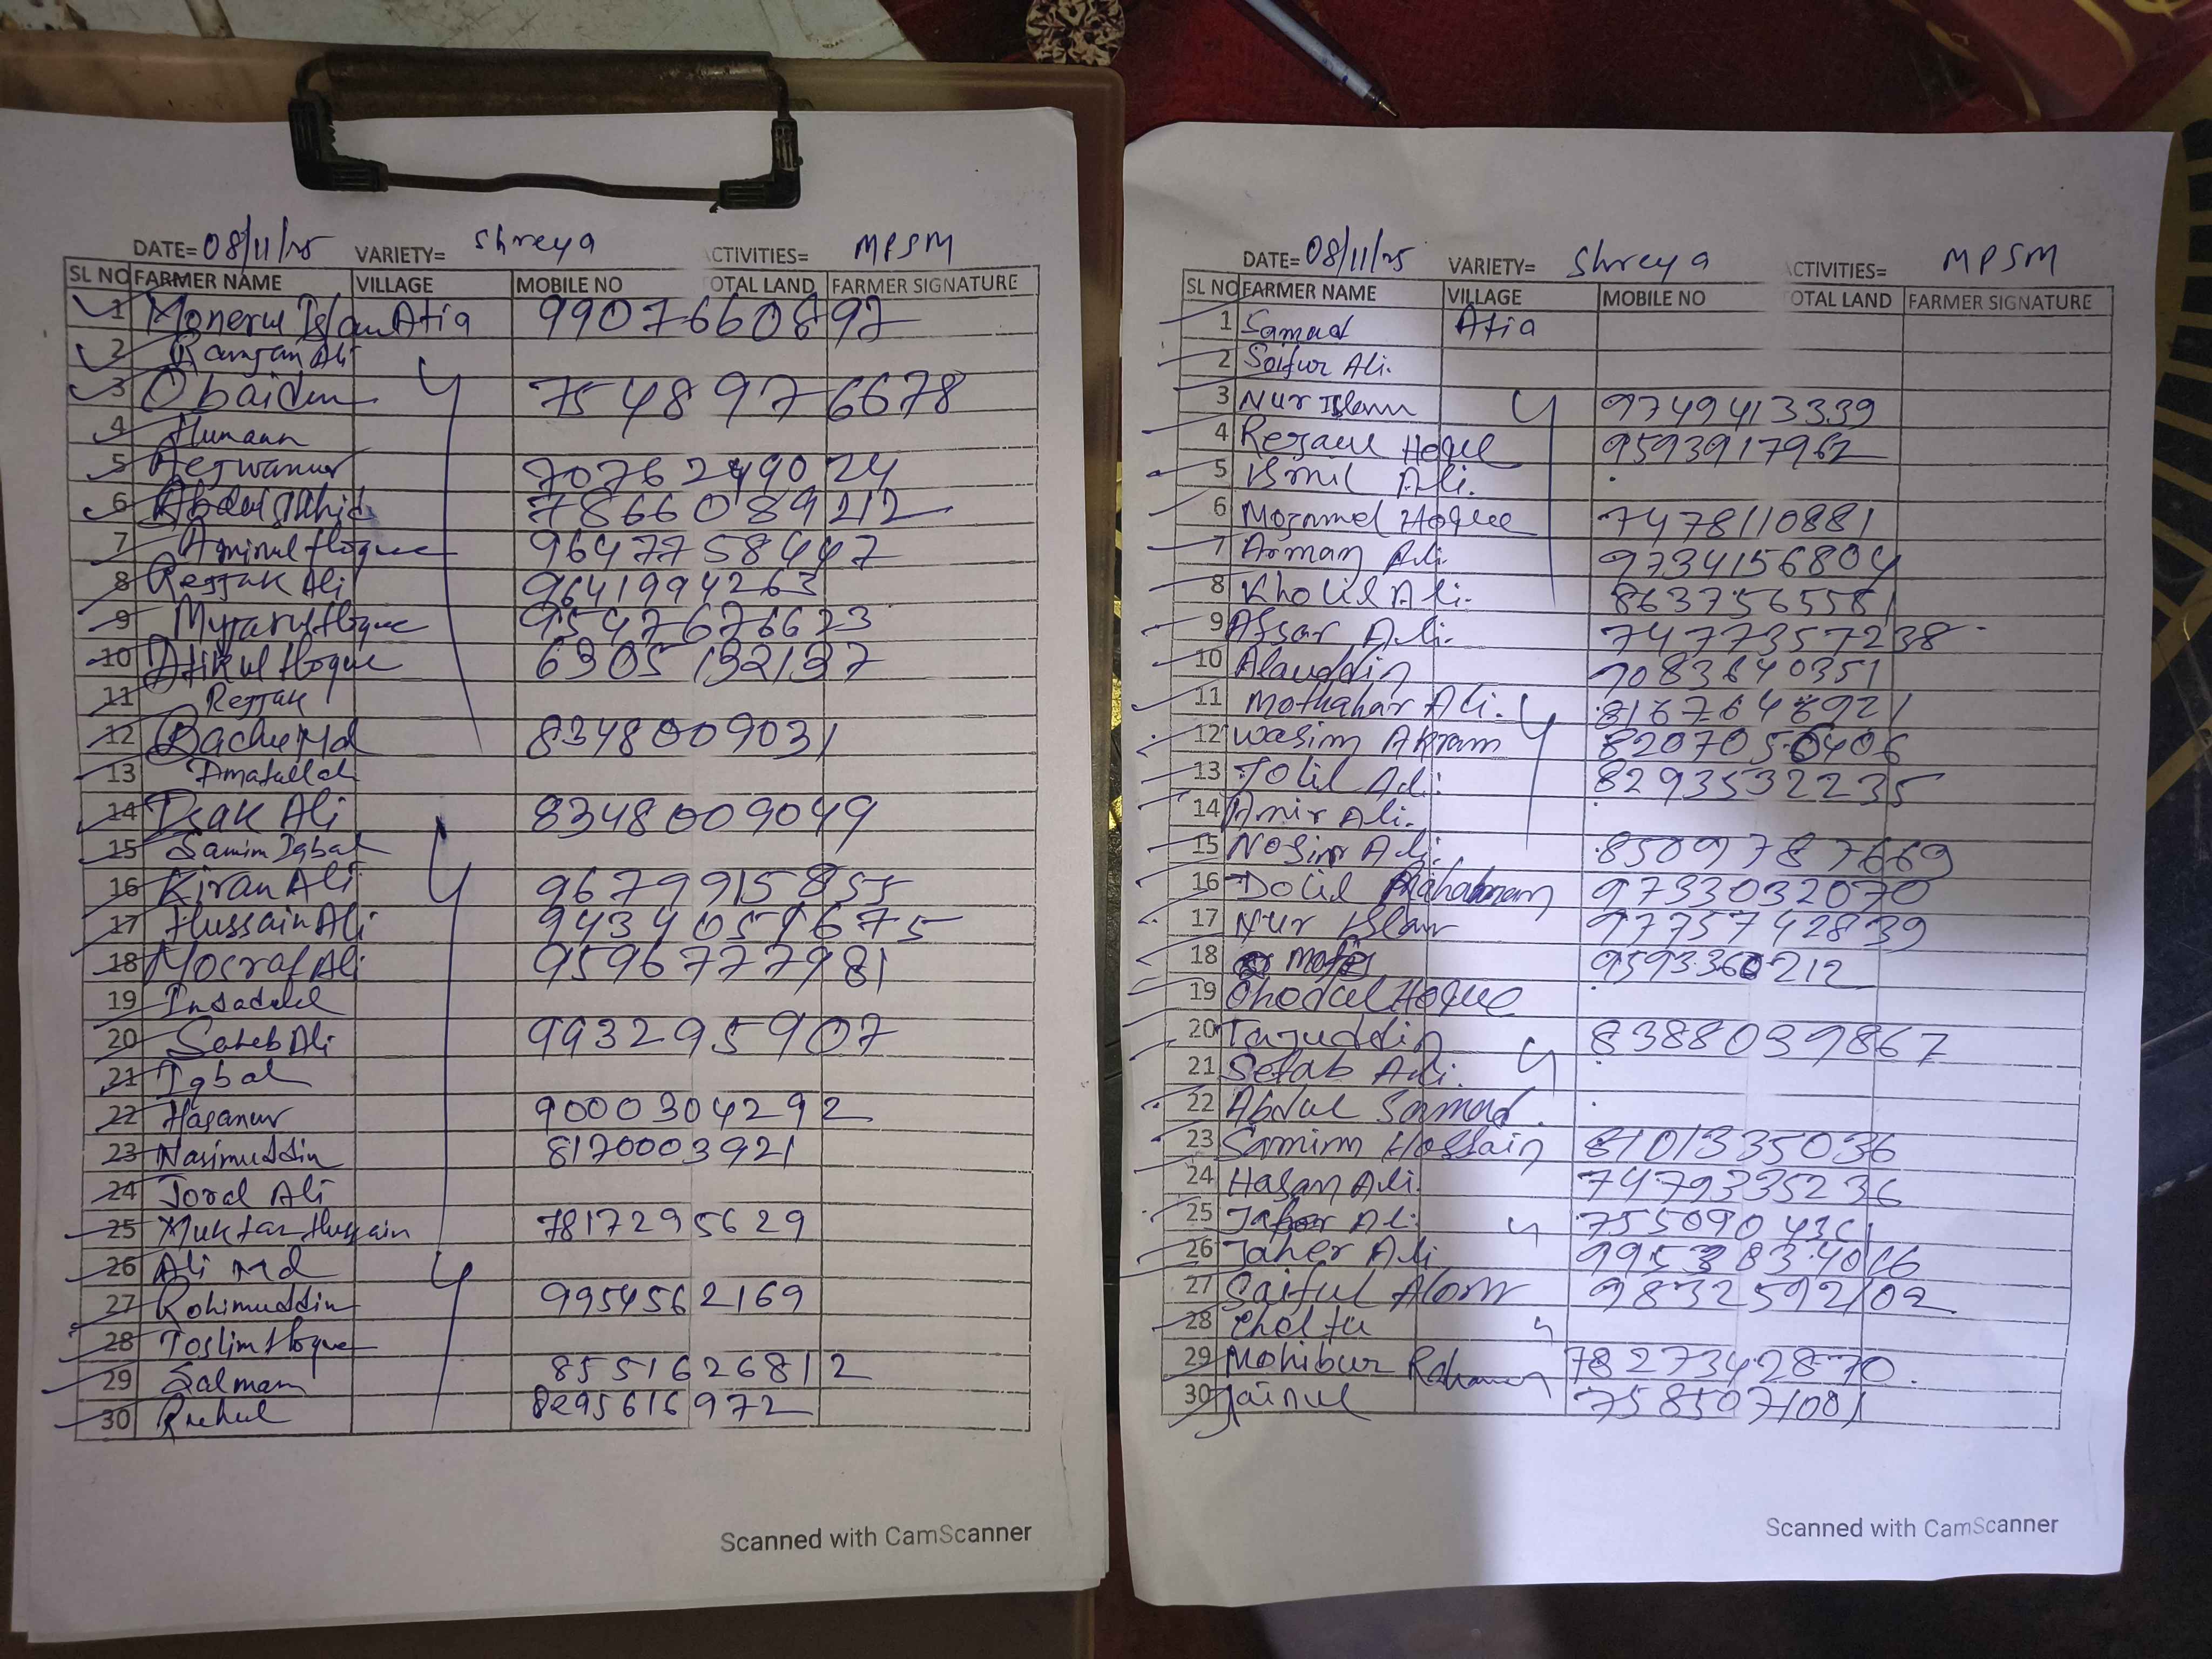 DATE= 08/11/25 VARIETY= Shreya ACTIVITIES= MPSM
SL NO FARMER NAME VILLAGE MOBILE NO TOTAL LAND FARMER SIGNATURE
1 Monerul Islam Atia 9907660897
2 Ramjan Ali
3 Obaidur 〃 7548976678
4 Humaun
5 Rejwanur 7076249024
6 Abdul 7866089212
7 Aminul Hoque 9647758447
8 Rejjak Ali 9641994263
9 Myjarul Hoque 9547676623
10 Atikul Hoque 6305132137
11 Rejjak
12 Bachu Md 8348009031
13 Amatullah
14 Isak Ali 8348009049
15 Samim Iqbal
16 Kiran Ali 〃 9679915855
17 Hussain Ali
18 Mosraf Ali 9596777981
19 Insadul
20 Saheb Ali 993295907
21 Iqbal
22 Hasanur 9000304292
23 Nasimuddin 8170003921
24 Jorol Ali
25 Muktar Hussain 7817295629
26 Ali Md 〃
27 Rohimuddin 9954562169
28 Toslim Hoque
29 Salman 8551626812
30 Ruhul 8295616972
Scanned with CamScanner
DATE= 08/11/25 VARIETY= Shreya ACTIVITIES= MPSM
SL NO FARMER NAME VILLAGE MOBILE NO TOTAL LAND FARMER SIGNATURE
1 Samad Atia
2 Saifur Ali.
3 Nur Islam 〃 9749413339
4 Rejaul Hoque 9593917962
5 Ali.
6 Mozamel Hoque 7478110881
7 Arman Ali. 9734156804
8 Kholil Ali. 8637565581
9 Afsar Ali. 7477357238
10 Alauddin 7083640351
11 Mothahar Ali. 〃
12 Wasim Akram 8207050406
13 Jolil Ali. 8293532235
14 Amir Ali.
15 Nosir Ali. 8509787669
16 Dolil 9733032070
17 Nur Islam 9775742839
18 9593360212
19 Hoque
20 Tajuddin 8388039867
21 Setab Ali. 〃
22 Abdul Samad.
23 Samim Hossain 8101335036
24 Hasan Ali. 7479335236
25 Ali. 〃
26 Jaher Ali
27 Saiful Alom 9832592102
28 〃
29 Mohibur Rahaman 7827342870.
30 Jainul 7585071001
Scanned with CamScanner